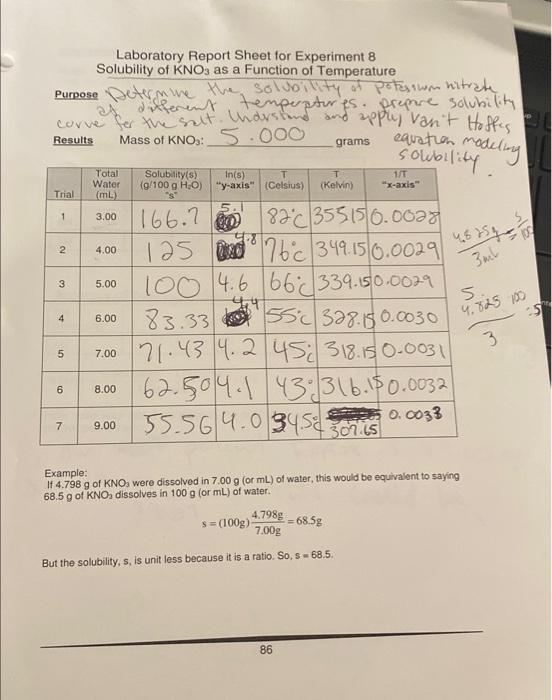 Laboratory Report Sheet for Experiment 8
Solubility of KNO₃ as a Function of Temperature
Purpose Determine the solubility of potassium nitrate
at different temperatures. prepare solubility
curve for the salt. Understand and apply Van't Hoffs
equation modeling
solubility.
Results Mass of KNO₃: 5.000 grams
Trial Total Water (mL) Solubility(s) (g/100 g H₂O) "s" ln(s) "y-axis" T (Celsius) T (Kelvin) 1/T "x-axis"
1 3.00 166.7 5.1 82°C 355.15 0.0028
2 4.00 125 4.8 76°C 349.15 0.0029
3 5.00 100 4.6 66°C 339.15 0.0029
4 6.00 83.33 4.4 55°C 328.15 0.0030
5 7.00 71.43 4.2 45°C 318.15 0.0031
6 8.00 62.50 4.1 43°C 316.15 0.0032
7 9.00 55.56 4.0 34.5°C 307.65 0.0033
3ml
5
4.825 100
3
Example:
If 4.798 g of KNO₃ were dissolved in 7.00 g (or mL) of water, this would be equivalent to saying
68.5 g of KNO₃ dissolves in 100 g (or mL) of water.
s = (100g) 4.798g / 7.00g = 68.5g
But the solubility, s, is unit less because it is a ratio. So, s = 68.5.
86